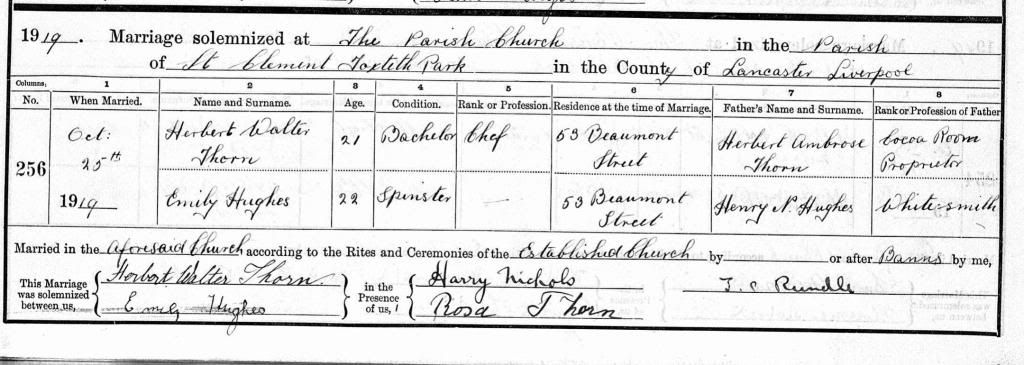 1919. Marriage solemnized at The Parish Church in the Parish
of St Clement Toxteth Park in the County of Lancaster Liverpool
Columns, 1 2 3 4 5 6 7 8
No. When Married. Name and Surname. Age. Condition. Rank or Profession. Residence at the time of Marriage. Father's Name and Surname. Rank or Profession of Father
Oct: Herbert Walter 21 Bachelor Chef 53 Beaumont Herbert Ambrose Cocoa Room
25th Thorn Street Thorn Proprietor
256
1919 Emily Hughes 22 Spinster — 53 Beaumont Henry N. Hughes White-smith
Street
Married in the aforesaid Church according to the Rites and Ceremonies of the Established Church by or after Banns by me,
This Marriage was solemnized between us, Herbert Walter Thorn. in the Presence of us, Harry Nichols J. C. Rundle
Emily Hughes Rosa Thorn